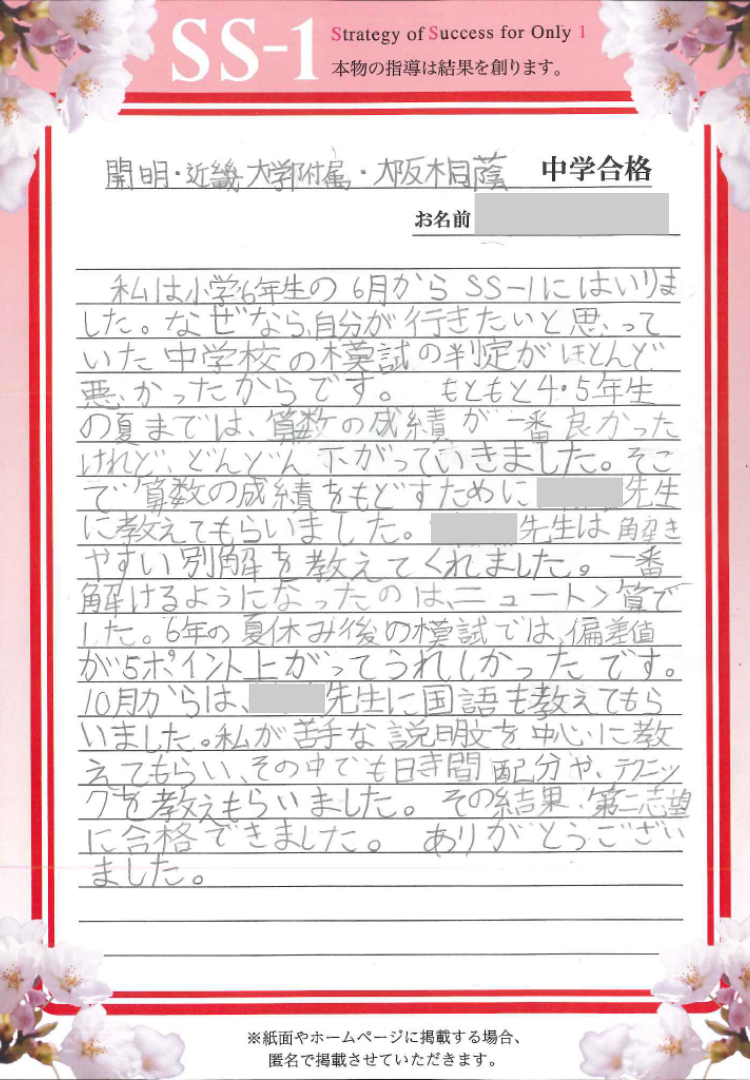 SS-1
Strategy of Success for Only 1
本物の指導は結果を創ります。
開明・近畿大学附属・大阪桐蔭 中学合格
お名前
私は小学6年生の6月からSS-1にはいりま
した。なぜなら、自分が行きたいと思って
いた中学校の模試の判定がほとんど
悪かったからです。 もともと4・5年生
の夏までは、算数の成績が一番良かった
けれど、どんどん下がっていきました。そこ
で算数の成績をもどすために 先生
に教えてもらいました。 先生は解き
やすい別解を教えてくれました。一番
解けるようになったのは、ニュートン算で
した。6年の夏休み後の模試では、偏差値
が5ポイント上がってうれしかったです。
10月からは、 先生に国語も教えてもら
いました。私が苦手な説明文を中心に教
えてもらい、その中でも時間配分や、テクニッ
クを教えもらいました。その結果、第二志望
に合格できました。 ありがとうござい
ました。
※紙面やホームページに掲載する場合、
匿名で掲載させていただきます。